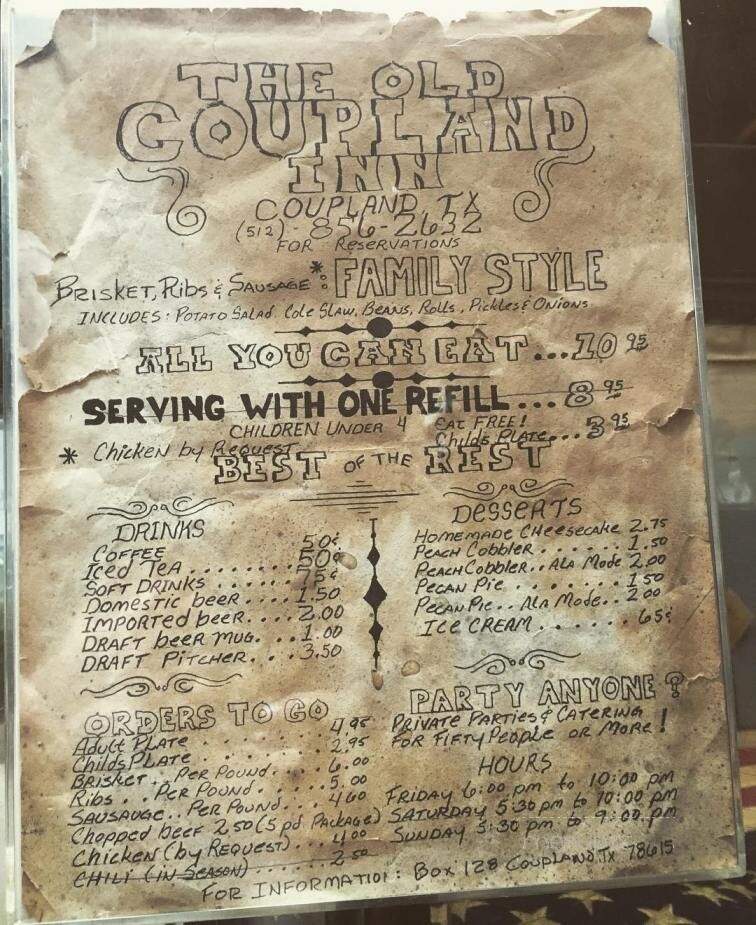 THE OLD
COUPLAND
INN
COUPLAND TX
(512)-856-2632
FOR RESERVATIONS
BRISKET, RIBS & SAUSAGE *: FAMILY STYLE
INCLUDES: POTATO SALAD, COLE SLAW, BEANS, ROLLS, PICKLES & ONIONS
ALL YOU CAN EAT...10 95
SERVING WITH ONE REFILL...8 95
CHILDREN UNDER 4 EAT FREE!
CHILDS PLATE...3 95
* Chicken by Request
BEST OF THE REST
DRINKS
COFFEE 50¢
ICED TEA ....... 50¢
SOFT DRINKS ...... 75¢
DOMESTIC beer ... 1.50
IMPORTED beer... 2.00
DRAFT beer MUG. ... 1.00
DRAFT PITCHER. ... 3.50
DESSERTS
HOMEMADE CHEESECAKE 2.75
PEACH COBBLER ...... 1.50
PEACH COBBLER.. ALA MODE 2.00
PECAN PIE ....... 1.50
PECAN PIE.. ALA MODE.. 2.00
ICE CREAM ...... 65¢
ORDERS TO GO
ADULT PLATE ....... 4.95
CHILDS PLATE ...... 2.95
BRISKET.. PER POUND.... 6.00
RIBS.. PER POUND..... 5.00
SAUSAUGE.. PER POUND.... 4.60
Chopped beef 2.50 (5 pd. PACKAGE)
Chicken (by REQUEST)... 4.00
CHILI (IN SEASON)..... 2.50
PARTY ANYONE?
PRIVATE PARTIES & CATERING
FOR FIFTY PEOPLE OR MORE!
HOURS
FRIDAY 6:00 pm to 10:00 pm
SATURDAY 5:30 pm to 10:00 pm
SUNDAY 5:30 pm to 9:00 pm
FOR INFORMATION: BOX 128 COUPLAND, TX 78615